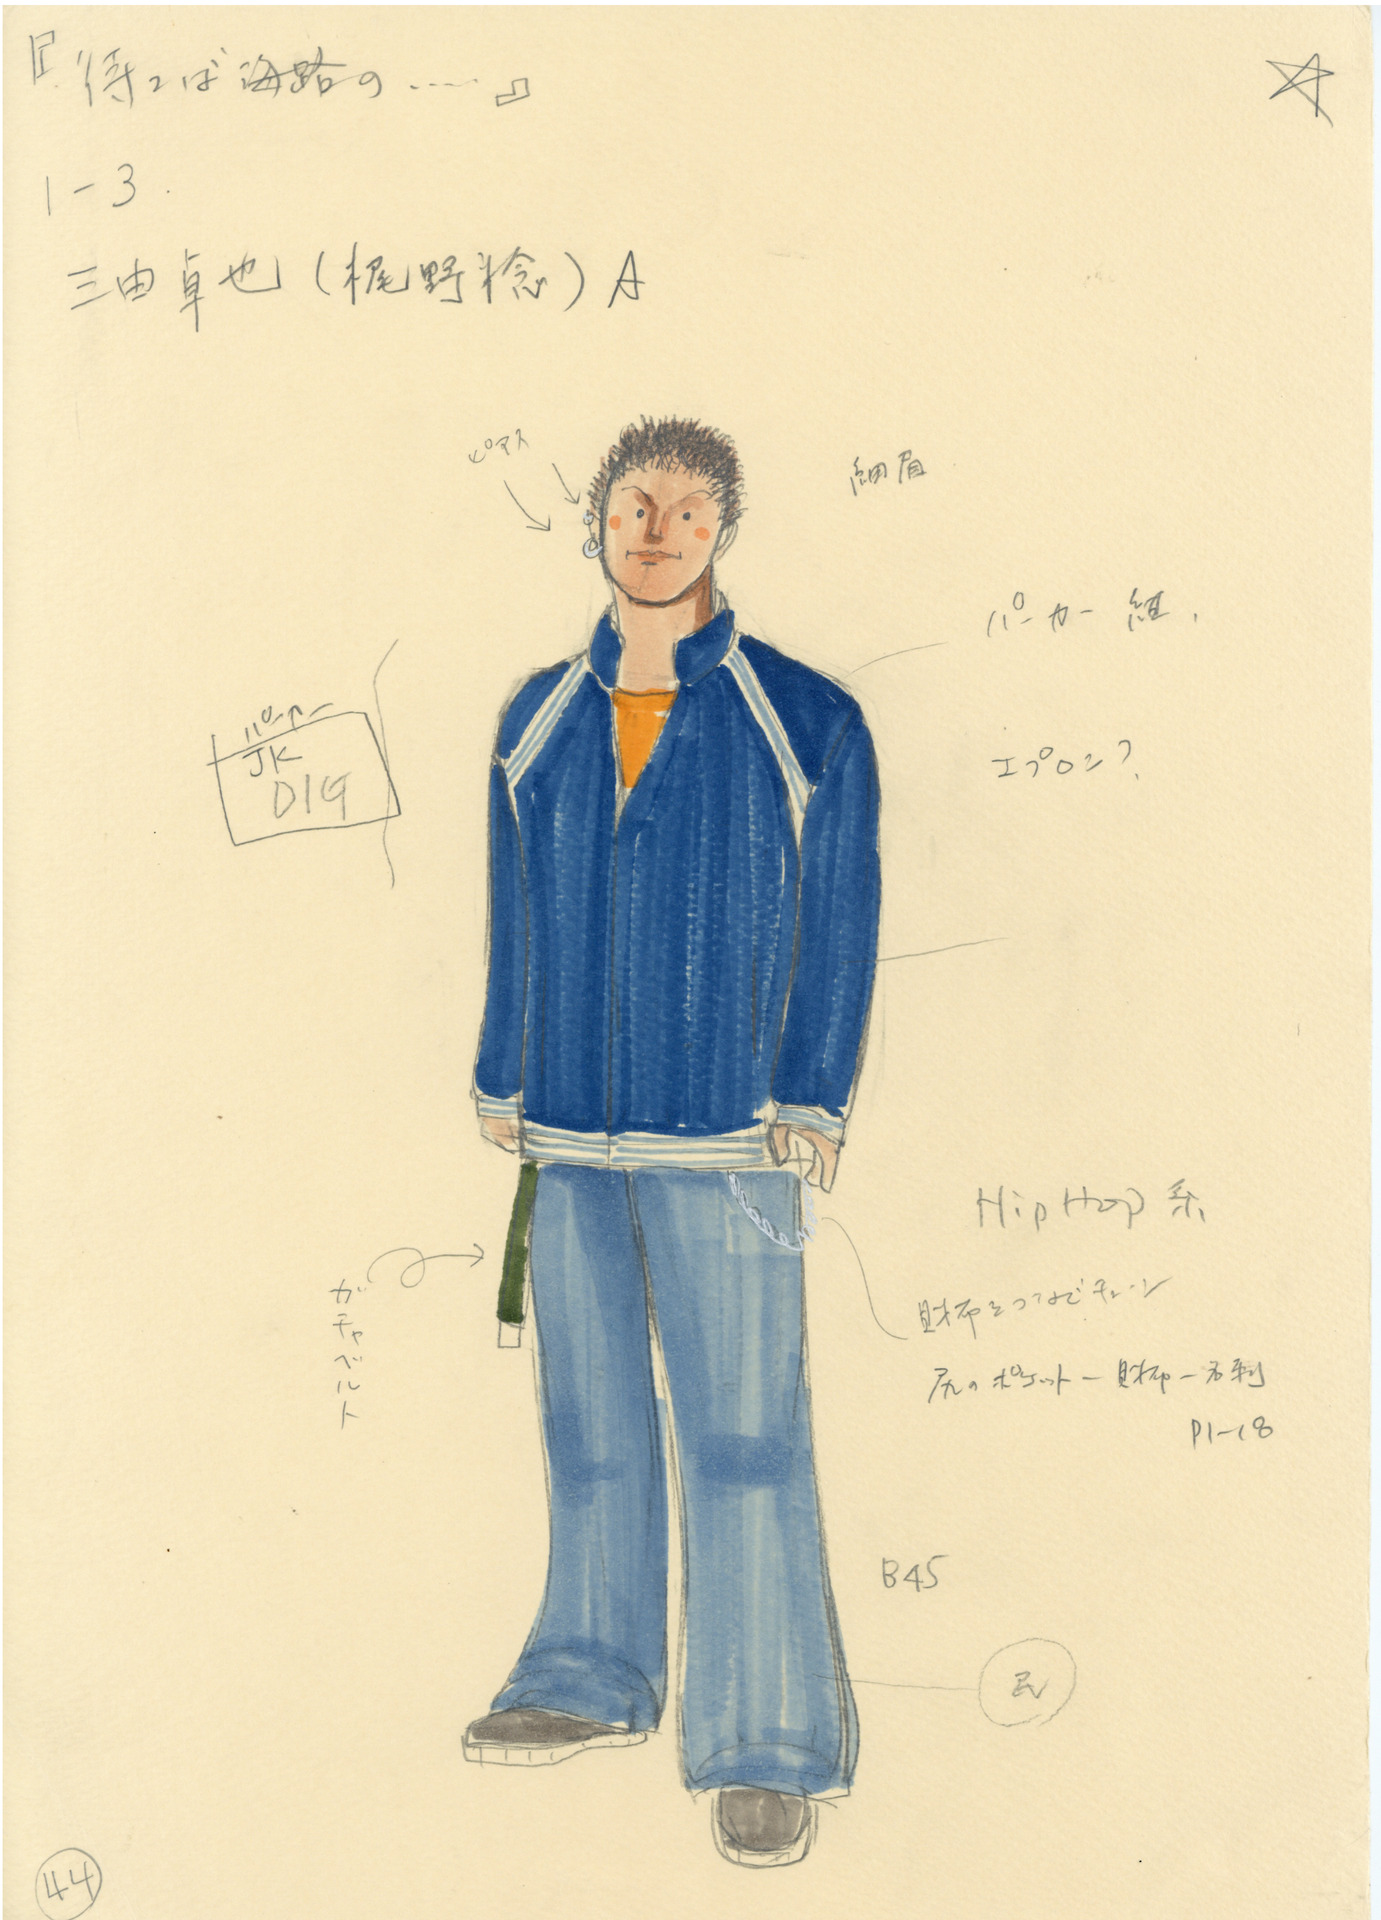 『待てば海路の……』
1-3.
三由卓也(梶野稔)A
ピアス
細眉
パーカー 紺.
パーカー
JK
エプロン?
HipHop 系
ガチャベルト
財布をつなぐチェーン
尻のポケットー財布ー名刺
P1-18
B45
44